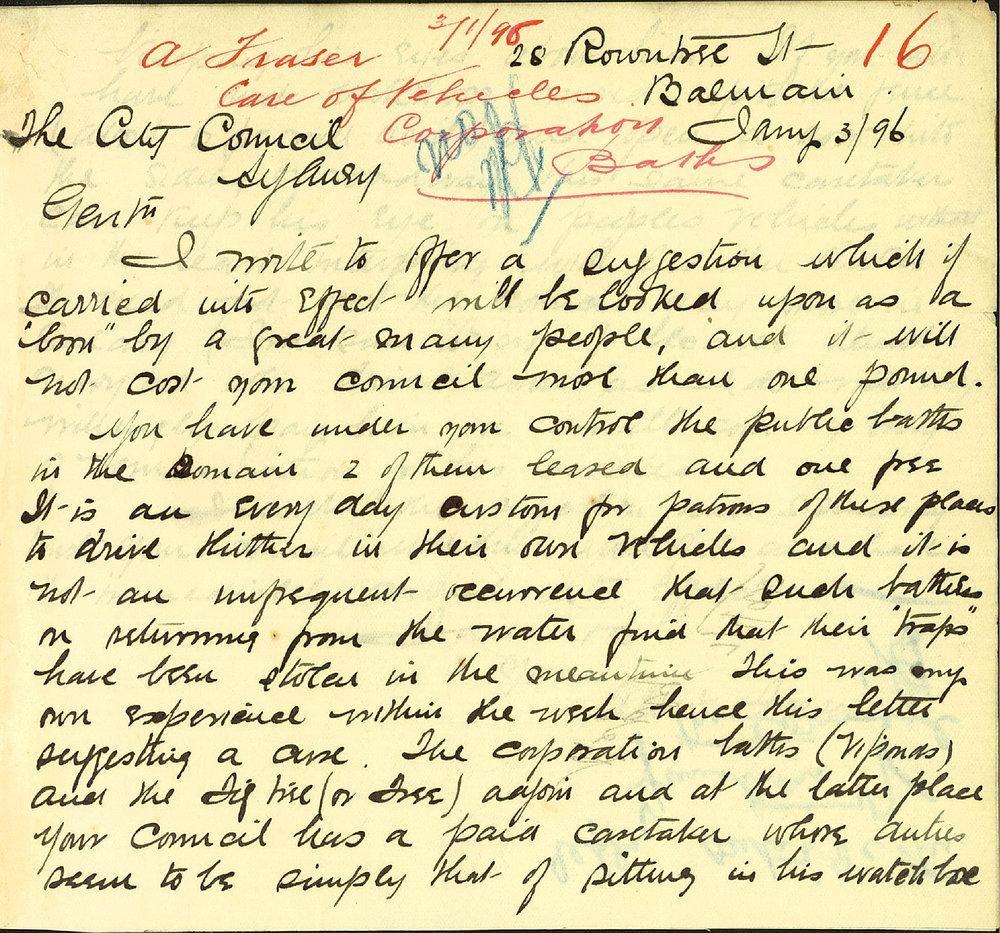 3/1/96
A Fraser 28 Rowntree St 16
Care of Vehicles Balmain.
The City Council Corporation Jany 3/96
Sydney Baths
Gentn
I write to offer a suggestion which if
carried into effect will be looked upon as a
"boon" by a great many people, and it will
not cost your council more than one pound.
You have under your control the public baths
in the Domain 2 of them leased and one free
It is an every day custom for patrons of these places
to drive thither in their own vehicles and it is
not an unfrequent occurrence that such bathers
on returning from the water find that their "traps"
have been stolen in the meantime This was my
own experience within the week hence this letter
suggesting a cure. The corporation baths (Viponds)
and the Fig tree (or Free) adjoin and at the latter place
your Council has a paid caretaker whose duties
seem to be simply that of sitting in his watch box